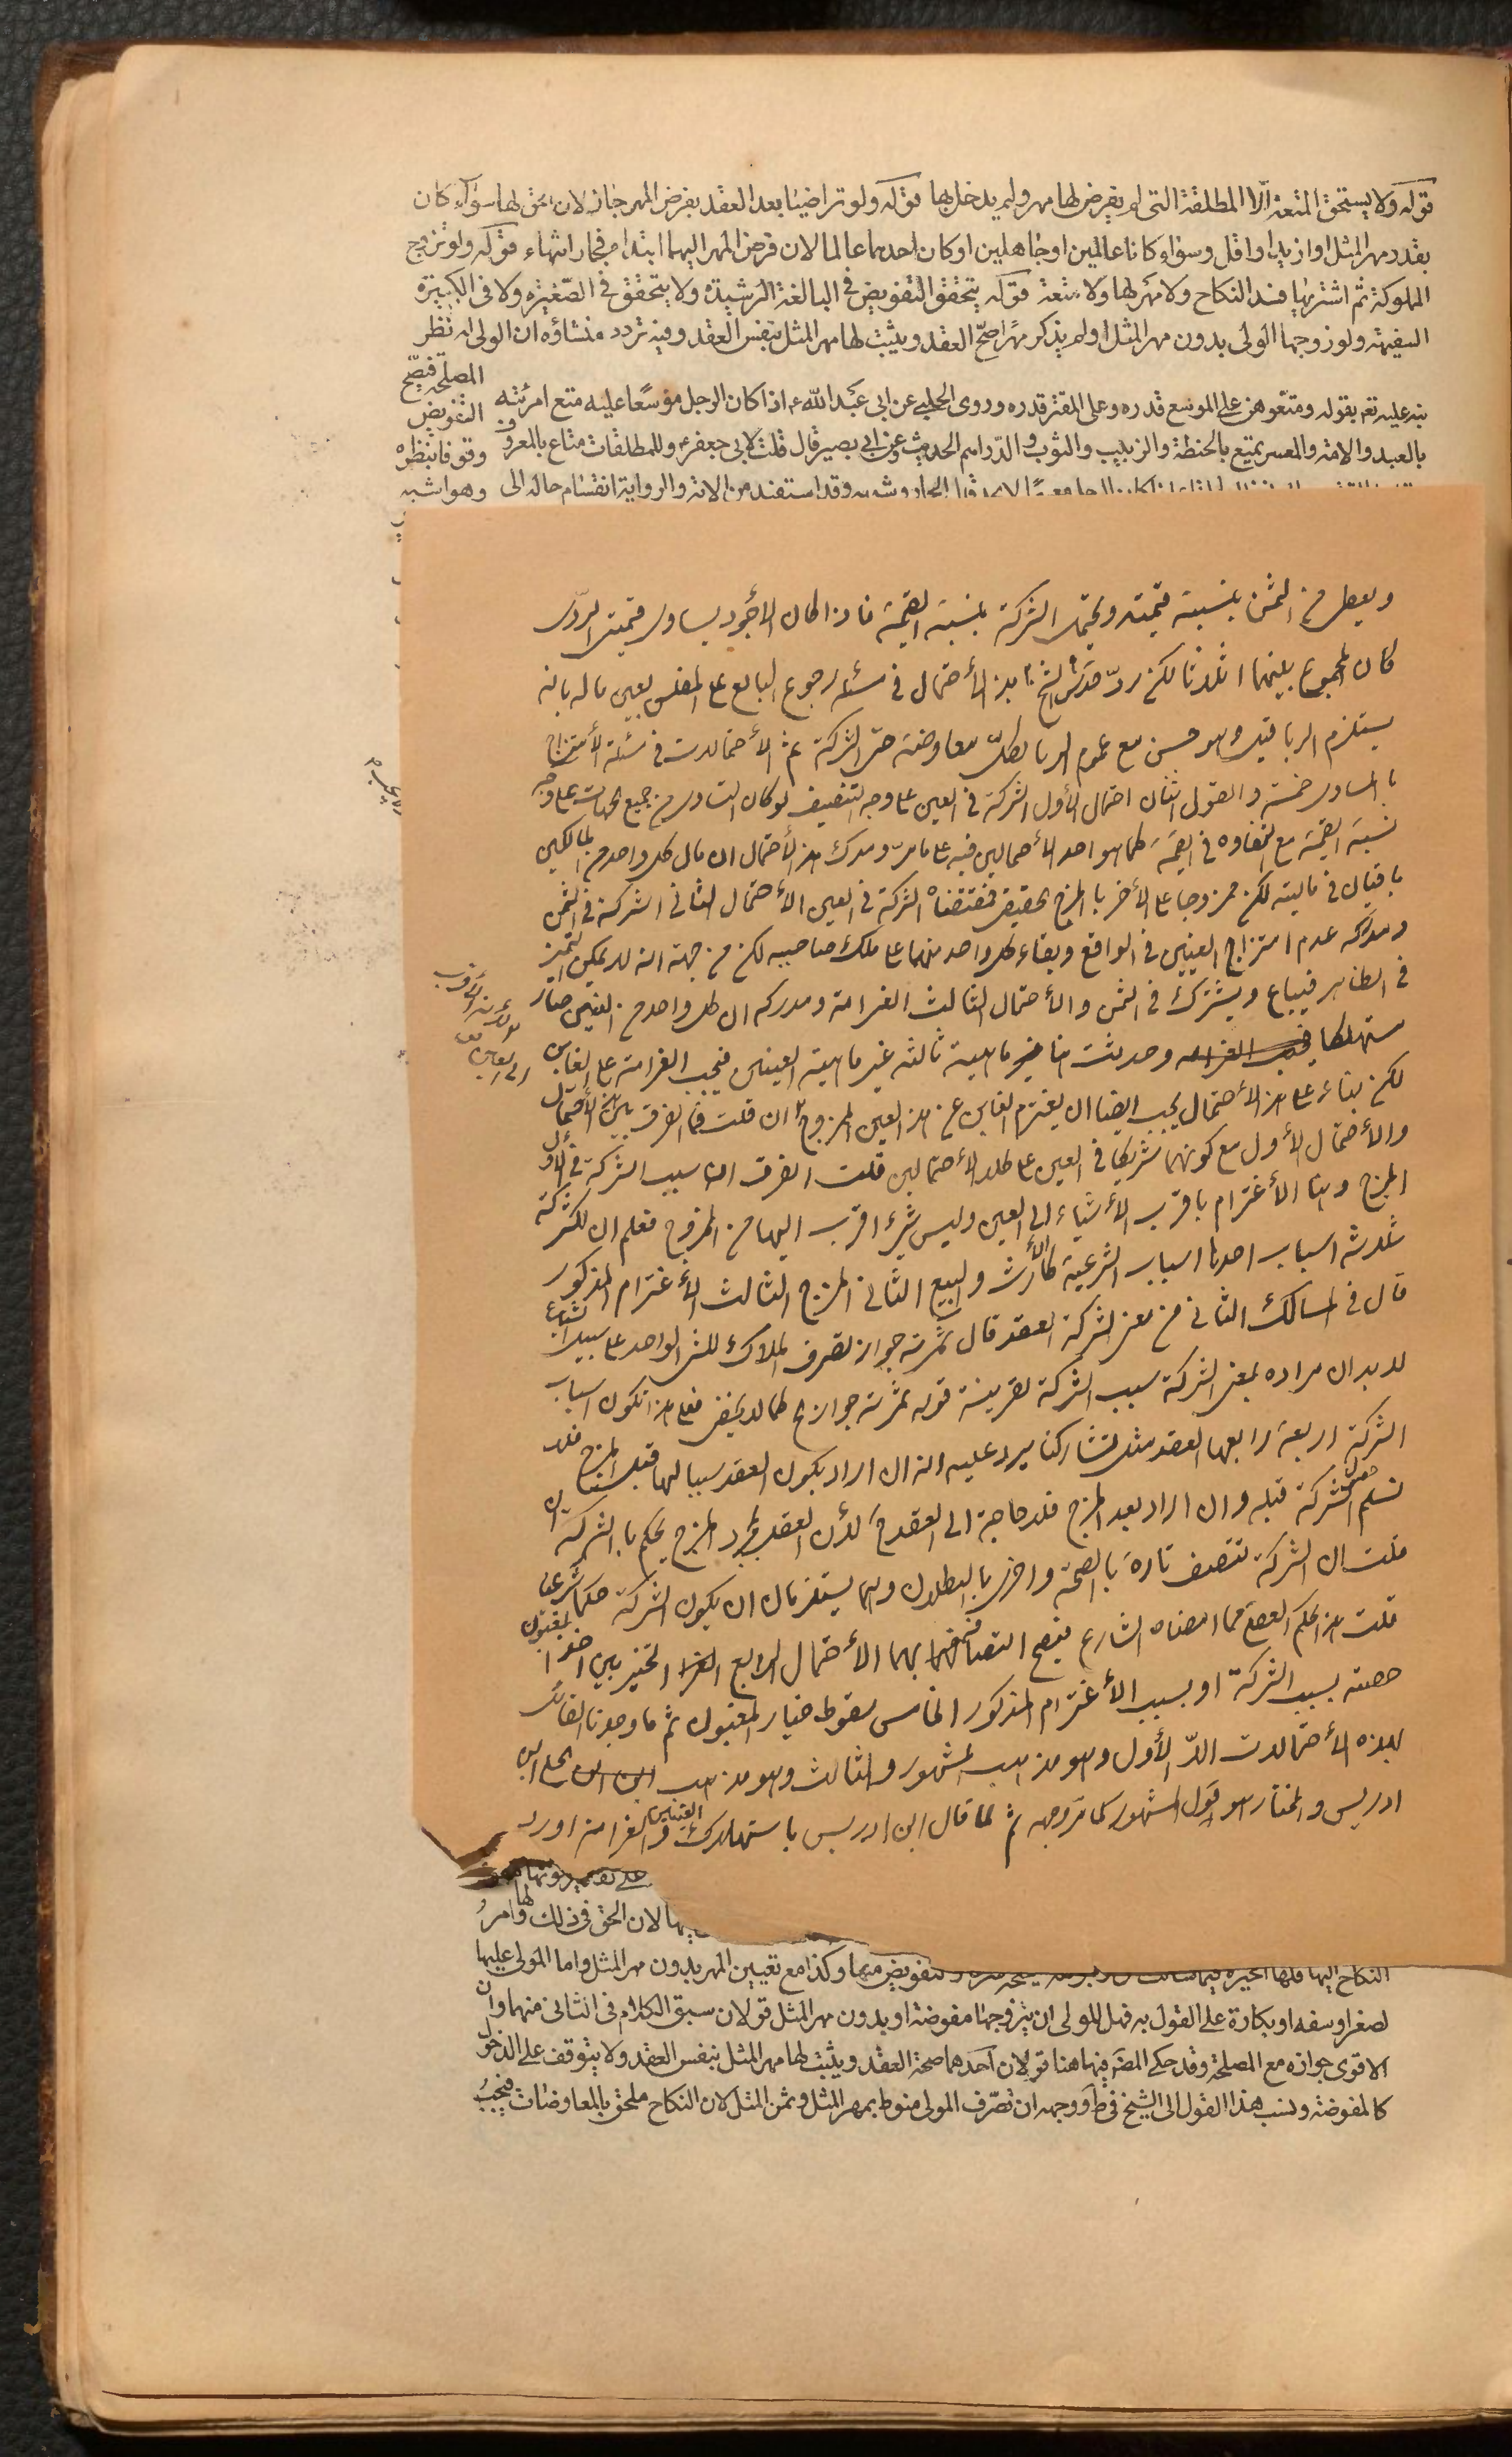 قوله ولا يستحق المتعة الا المطلقة التى لم يفرض لها مهر ولم يدخل بها قوله ولو تراضيا بعد العقد بفرض المهر جاز لان الحق لها سواء كان
بقدر مهر المثل او ازيد او اقل وسواء كانا عالمين او جاهلين او كان احدهما عالما لان فرض المهر اليهما ابتداء فجاز انتهاء قوله ولو تزوج
المملوكة ثم اشتريها فسد النكاح ولا مهر لها ولا متعة قوله يتحقق التفويض فى البالغة الرشيدة ولا يتحقق فى الصغيرة ولا فى الكبيرة
السفيهة ولو زوجها الولى بدون مهر المثل او لم يذكر مهرا صح العقد ويثبت لها مهر المثل بنفس العقد وفيه تردد منشاؤه ان الولى له نظر
المصلحة فيصح
التفويض
وقوفا بنظره
وهو اشبه
نبه عليه تعم بقوله ومتعوهن على الموسع قدره وعلى المقتر قدره وروى الحلبى عن ابى عبد الله ع اذا كان الرجل موسعا عليه متع امرئته
بالعبد والامة والمعسر يمتع بالحنطة والزبيب والثوب والدراهم الحديث وعن ابى بصير قال قلت لابى جعفر ع وللمطلقات متاع بالمعروف
وقد استفيد من الاية والرواية انقسام حاله الى
ويعطى من الثمن بنسبة قيمته ويحتمل الشركة بنسبة القيمة فاذا كان الأجود يساوى قيمتى الردى
كان المجموع بينهما اثلاثا لكن رد الشيخ هذا الأحتمال فى مسئلة رجوع البايع على المفلس بعين ماله بانه
يستلزم الربا قيل وهو حسن مع عموم الربا لكل معاوضة حتى الشركة ثم الأحتمالات فى مسئلة الأمتزاج
بالمساوى خمسة والقول اثنان احتمال الأول الشركة فى العين على وجه التنصيف لو كان التساوى من جميع الجهات على وجه
نسبة القيمة مع التفاوة فى القيمة كما هو احد الأحتمالين فيه على ما مر ومدرك هذا الأحتمال ان مال كل واحد من المالكين
باقيان فى ماليته لكن ممزوجا على الأخر بالمزج الحقيقى فمقتضاه الشركة فى العين الأحتمال الثانى الشركة فى الثمن
ومدركه عدم امتزاج العينين فى الواقع وبقاء كل واحد منهما على ملك صاحبه لكن من جهة انه لا يمكن التميز
فى الظاهر فيباع ويشترك فى الثمن والأحتمال الثالث الغرامة ومدركه ان كل واحد من العينين صار
مستهلكا وحدثت هنا ماهية ثالثة غير ماهية العينين فيجب الغرامة على الغابن
لكن بناء على هذا الأحتمال يجب ايضا ان يغترم الغابن من هذا العين الممزوج ان قلت فما الفرق بين هذا الأحتمال
والأحتمال الأول مع كونهما شريكا فى العين على كلا الأحتمالين قلت الفرق ان سبب الشركة فى الأول
المزج وهنا الأغترام باقرب الأشياء الى العين وليس شىء اقرب اليها من الممزوج فعلم ان للشركة
ثلاثة اسباب احدها اسباب الشرعية كالأرث والبيع الثانى المزج الثالث الأغترام المذكور
قال فى المسالك الثانى من معنى الشركة العقد قال ثمرته جواز تصرف الملاك للشىء الواحد على سبيل الشياع
لا بد ان مراده بمعنى الشركة سبب الشركة بقرينة قوله ثمرته جواز الخ كما لا يخفى فعلى هذا تكون اسباب
الشركة اربعة رابعها العقد مثل تشاركنا يرد عليه انه ان اراد بكون العقد سببا لها قبل المزج فلا
نسلم حصول الشركة قبله وان اراد بعد المزج فلا حاجة الى العقد ح لأن العقل بمجرد المزج يحكم بالشركة ان
قلت ان الشركة تتصف تارة بالصحة واخرى بالبطلان وهما يستلزمان ان يكون الشركة حكما شرعيا
قلت هذا الحكم العقلى مما امضاه الشارع فيصح اتصافها بهما الأحتمال الرابع التخيير بين اخذ المغبون
حصته بسبب الشركة او بسبب الأغترام المذكور الخامس سقوط خيار المغبون ثم ما وجدنا القائل
لهذه الأحتمالات الا الأول وهو مذهب المشهور والثالث وهو مذهب الحلى ابن
ادريس والمختار هو قول المشهور كما مر وجهه ثم لما قال ابن ادريس باستهلاك العينين والغرامة اورد
لان الحق فى ذلك لها وامر
النكاح اليها فلها الخيرة والتفويض منها وكذا مع تعيين المهر بدون مهر المثل واما المولى عليها
لصغر او سفه او بكارة على القول به فهل للولى ان يزوجها مفوضة او بدون مهر المثل قولان سبق الكلام فى الثانى منهما وان
الاقوى جوازه مع المصلحة وقد حكى المصَ فيها هنا قولان احدهما صحة العقد ويثبت لها مهر المثل بنفس العقد ولا يتوقف على الدخول
كالمفوضة ونسب هذا القول الى الشيخ فى ط ووجهه ان تصرف المولى منوط بمهر المثل وثمن المثل لان النكاح ملحق بالمعاوضات فيجب